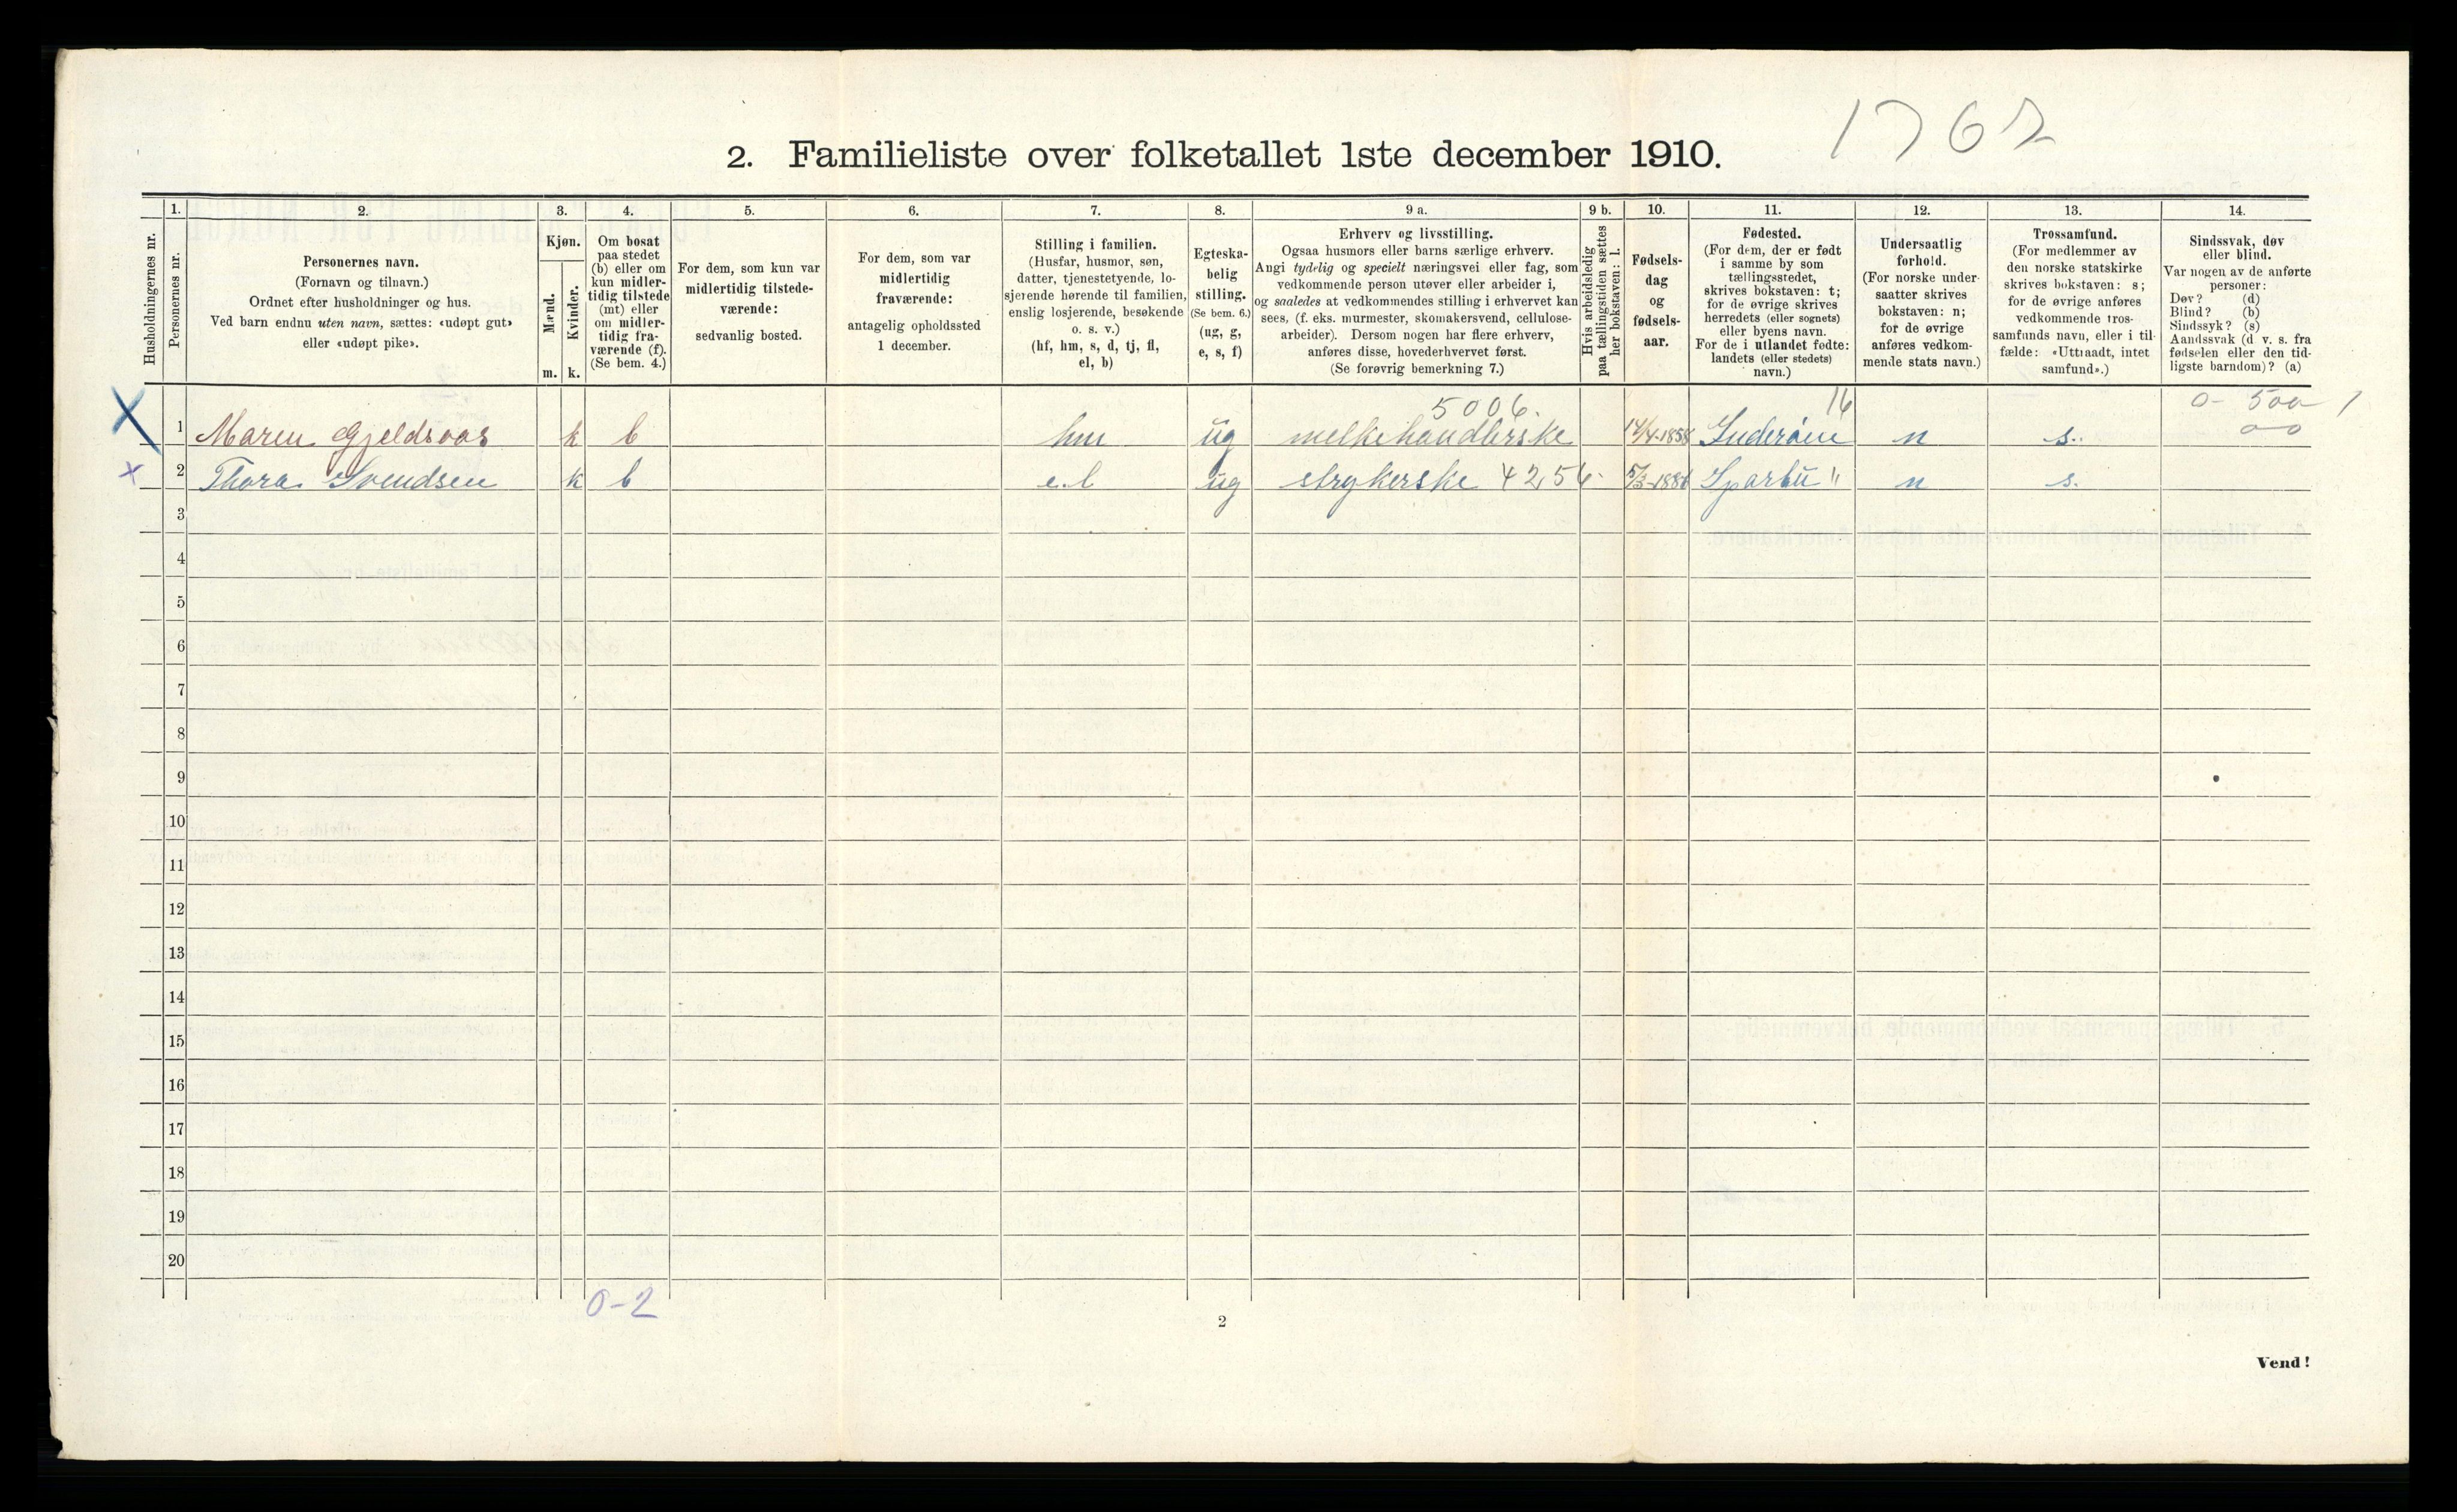 1762
2. Familieliste over folketallet 1ste december 1910.
Husholdningernes nr.
1.
Personernes nr.
2.
Personernes navn.
(Fornavn og tilnavn.)
Ordnet efter husholdninger og hus.
Ved barn endnu uten navn, sættes: «udøpt gut»
eller «udøpt pike».
3.
Kjøn.
Mænd.
Kvinder.
m.
k.
4.
Om bosat
paa stedet
(b) eller om
kun midler-
tidig tilstede
(mt) eller
om midler-
tidig fra-
værende (f).
(Se bem. 4.)
5.
For dem, som kun var
midlertidig tilstede-
værende:
sedvanlig bosted.
6.
For dem, som var
midlertidig
fraværende:
antagelig opholdssted
1 december.
7.
Stilling i familien.
(Husfar, husmor, søn,
datter, tjenestetyende, lo-
sjerende hørende til familien,
enslig losjerende, besøkende
o. s. v.)
(hf, hm, s, d, tj, fl,
el, b)
8.
Egteska-
belig
stilling.
(Se bem. 6.)
(ug, g,
e, s, f)
9 a.
Erhverv og livsstilling.
Ogsaa husmors eller barns særlige erhverv.
Angi tydelig og specielt næringsvei eller fag, som
vedkommende person utøver eller arbeider i,
og saaledes at vedkommendes stilling i erhvervet kan
sees, (f. eks. murmester, skomakersvend, cellulose-
arbeider). Dersom nogen har flere erhverv,
anføres disse, hovederhvervet først.
(Se forøvrig bemerkning 7.)
9 b.
Hvis arbeidsledig
paa tællingstiden sættes
her bokstaven: l.
10.
Fødsels-
dag
og
fødsels-
aar.
11.
Fødested.
(For dem, der er født
i samme by som
tællingsstedet,
skrives bokstaven: t;
for de øvrige skrives
herredets (eller sognets)
eller byens navn.
For de i utlandet fødte:
landets (eller stedets)
navn.)
12.
Undersaatlig
forhold.
(For norske under-
saatter skrives
bokstaven: n;
for de øvrige
anføres vedkom-
mende stats navn.)
13.
Trossamfund.
(For medlemmer av
den norske statskirke
skrives bokstaven: s;
for de øvrige anføres
vedkommende tros-
samfunds navn, eller i til-
fælde: «Uttraadt, intet
samfund».)
14.
Sindssvak, døv
eller blind.
Var nogen av de anførte
personer:
Døv? (d)
Blind? (b)
Sindssyk? (s)
Aandssvak (d v. s. fra
fødselen eller den tid-
ligste barndom)? (a)
5006. 16 0- 500 1
X 1 Maren Gjeldsaas k b hm ug melkehandlerske 14/4-1858 Inderøen n s. 00
x 2 Thora Svendsen k b e.l ug strykerske 4256. Sparbu " n s.
3
4
5
6
7
8
9
10
11
12
13
14
15
16
17
18
19
20
0-2
2
Vend!